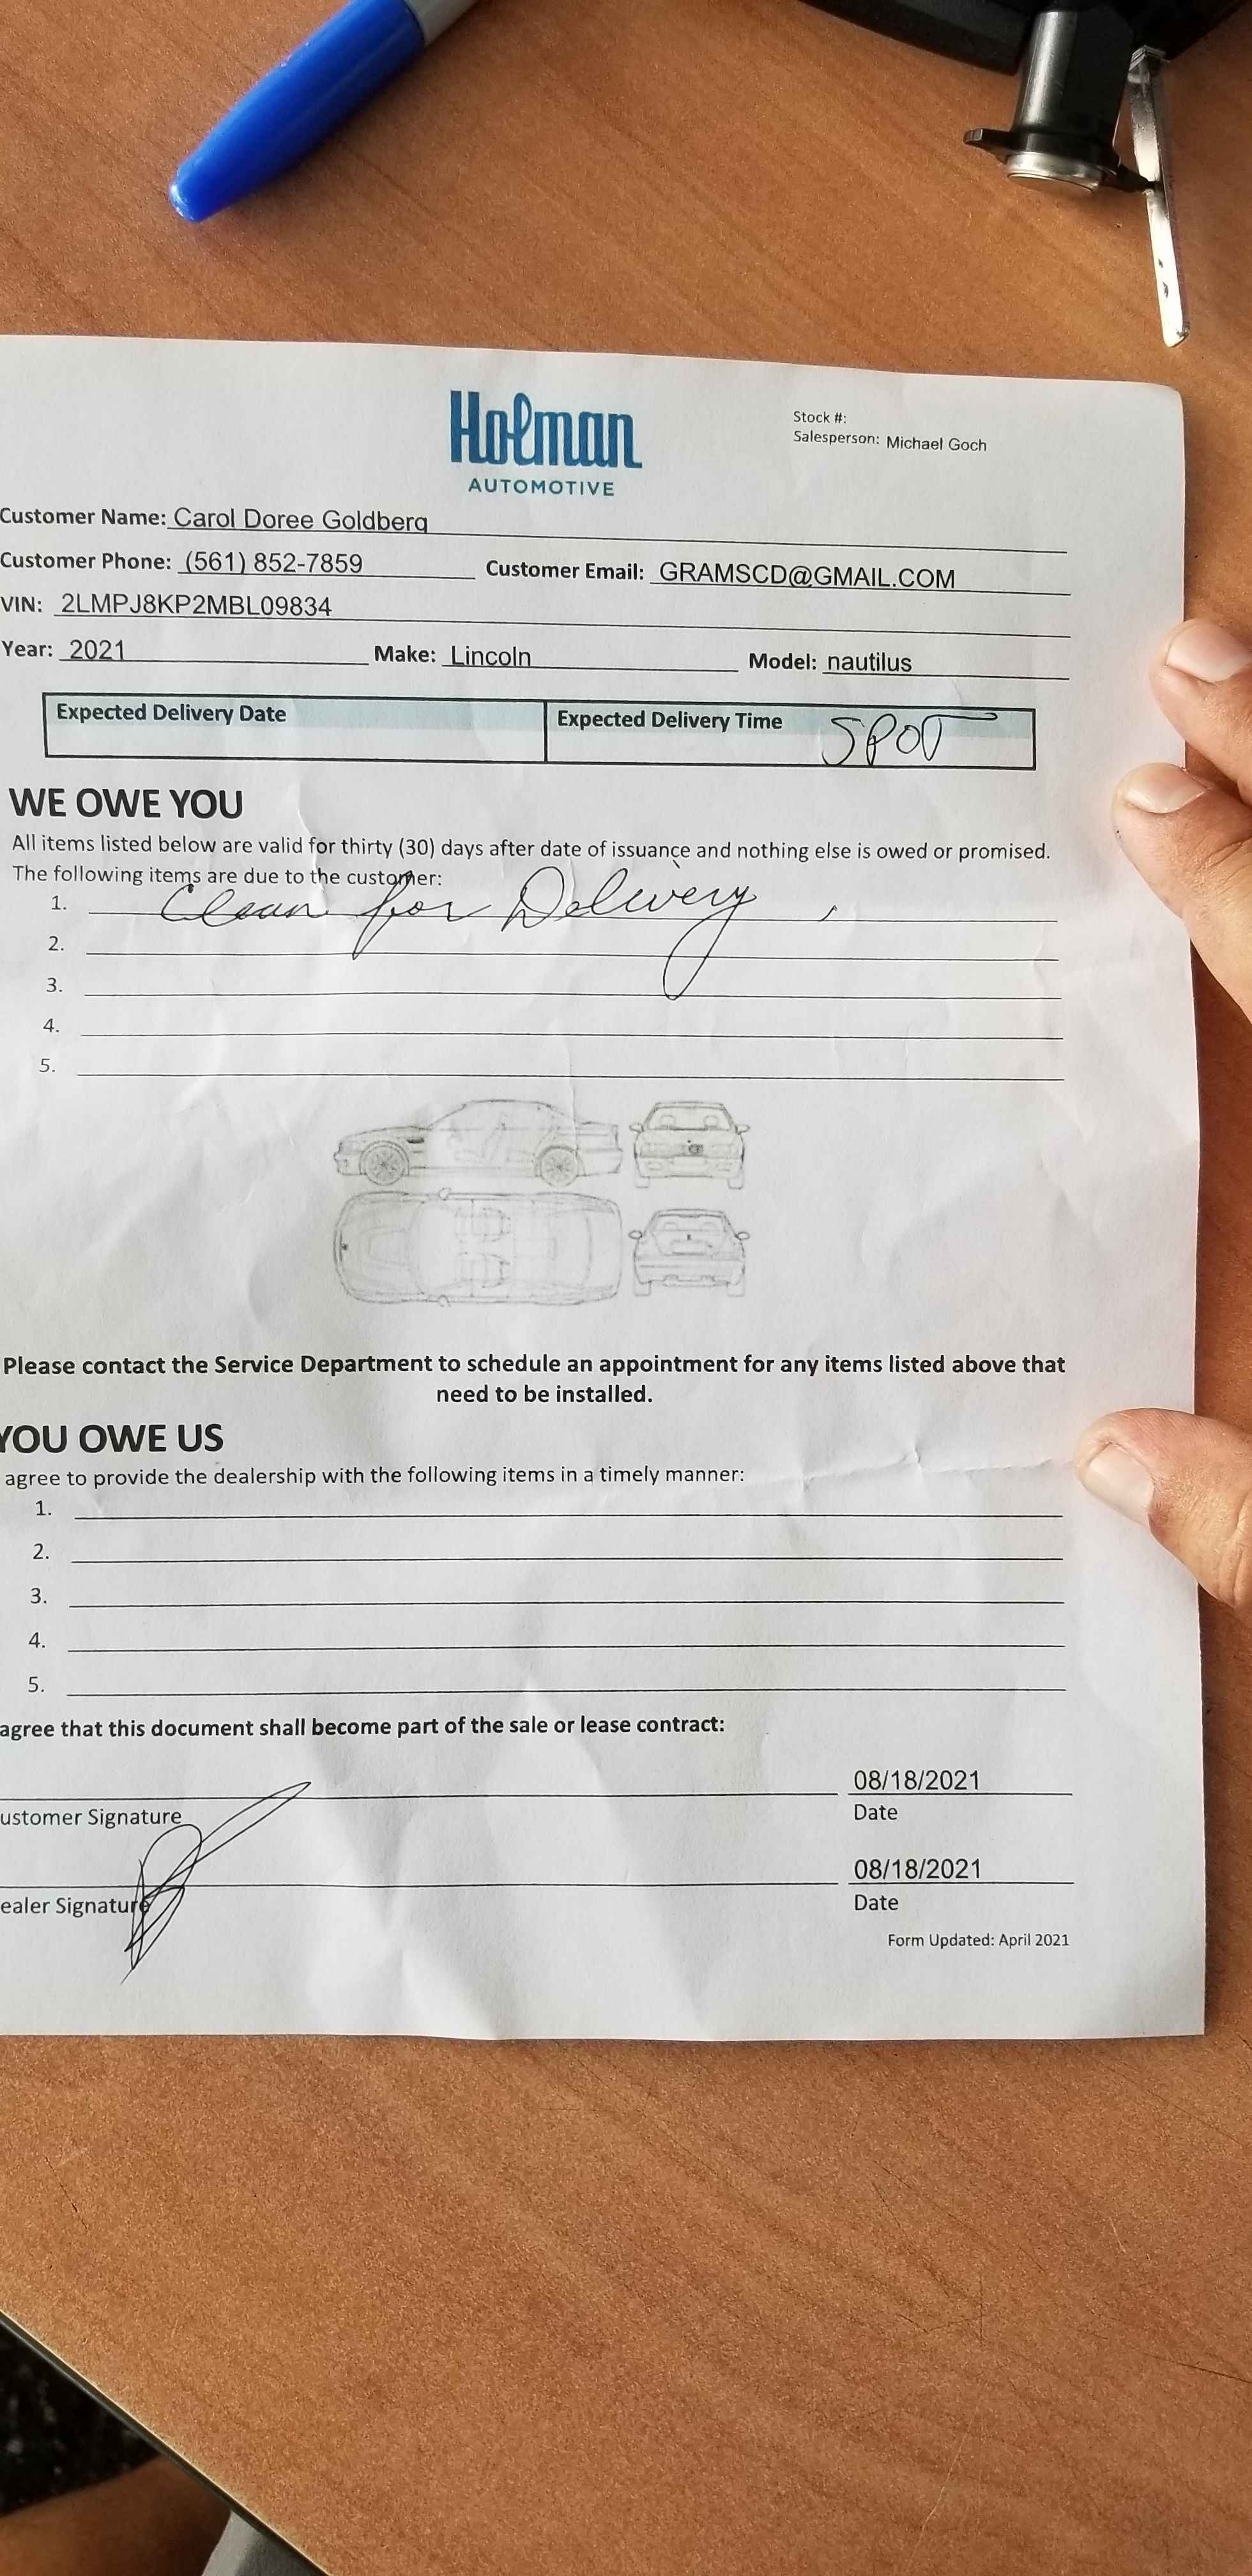 Holman
AUTOMOTIVE
Stock #:
Salesperson: Michael Goch
Customer Name: Carol Doree Goldberg
Customer Phone: (561) 852-7859 Customer Email: GRAMSCD@GMAIL.COM
VIN: 2LMPJ8KP2MBL09834
Year: 2021 Make: Lincoln Model: nautilus
Expected Delivery Date Expected Delivery Time SPOT
WE OWE YOU
All items listed below are valid for thirty (30) days after date of issuance and nothing else is owed or promised.
The following items are due to the customer:
1. Clean for Delivery
2.
3.
4.
5.
Please contact the Service Department to schedule an appointment for any items listed above that
need to be installed.
YOU OWE US
agree to provide the dealership with the following items in a timely manner:
1.
2.
3.
4.
5.
agree that this document shall become part of the sale or lease contract:
08/18/2021
ustomer Signature Date
08/18/2021
ealer Signature Date
Form Updated: April 2021